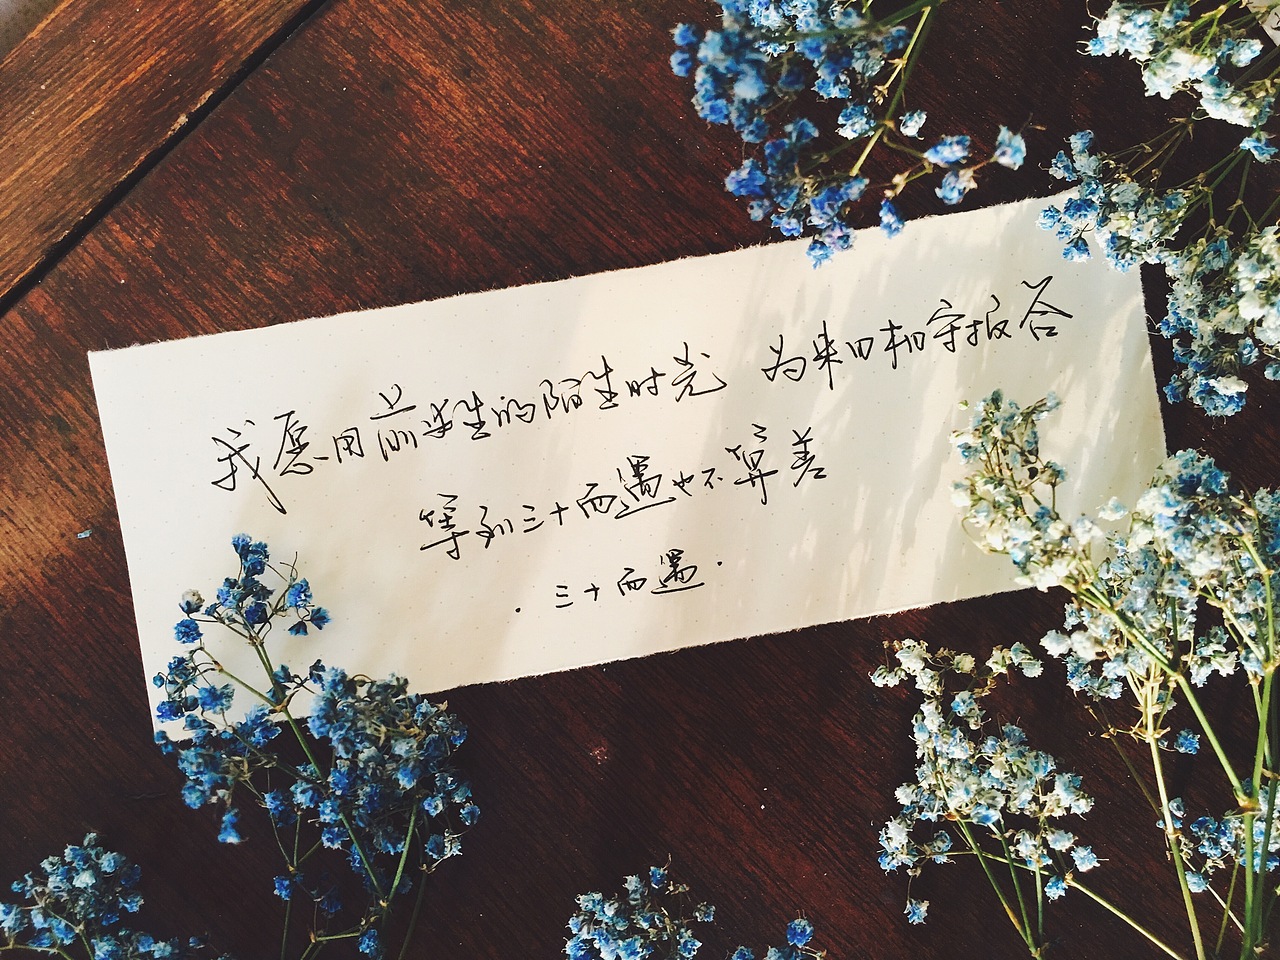 我愿用前半生的陌生时光 为来日相守报答
等到三十而遇也不算差
·三十而遇·